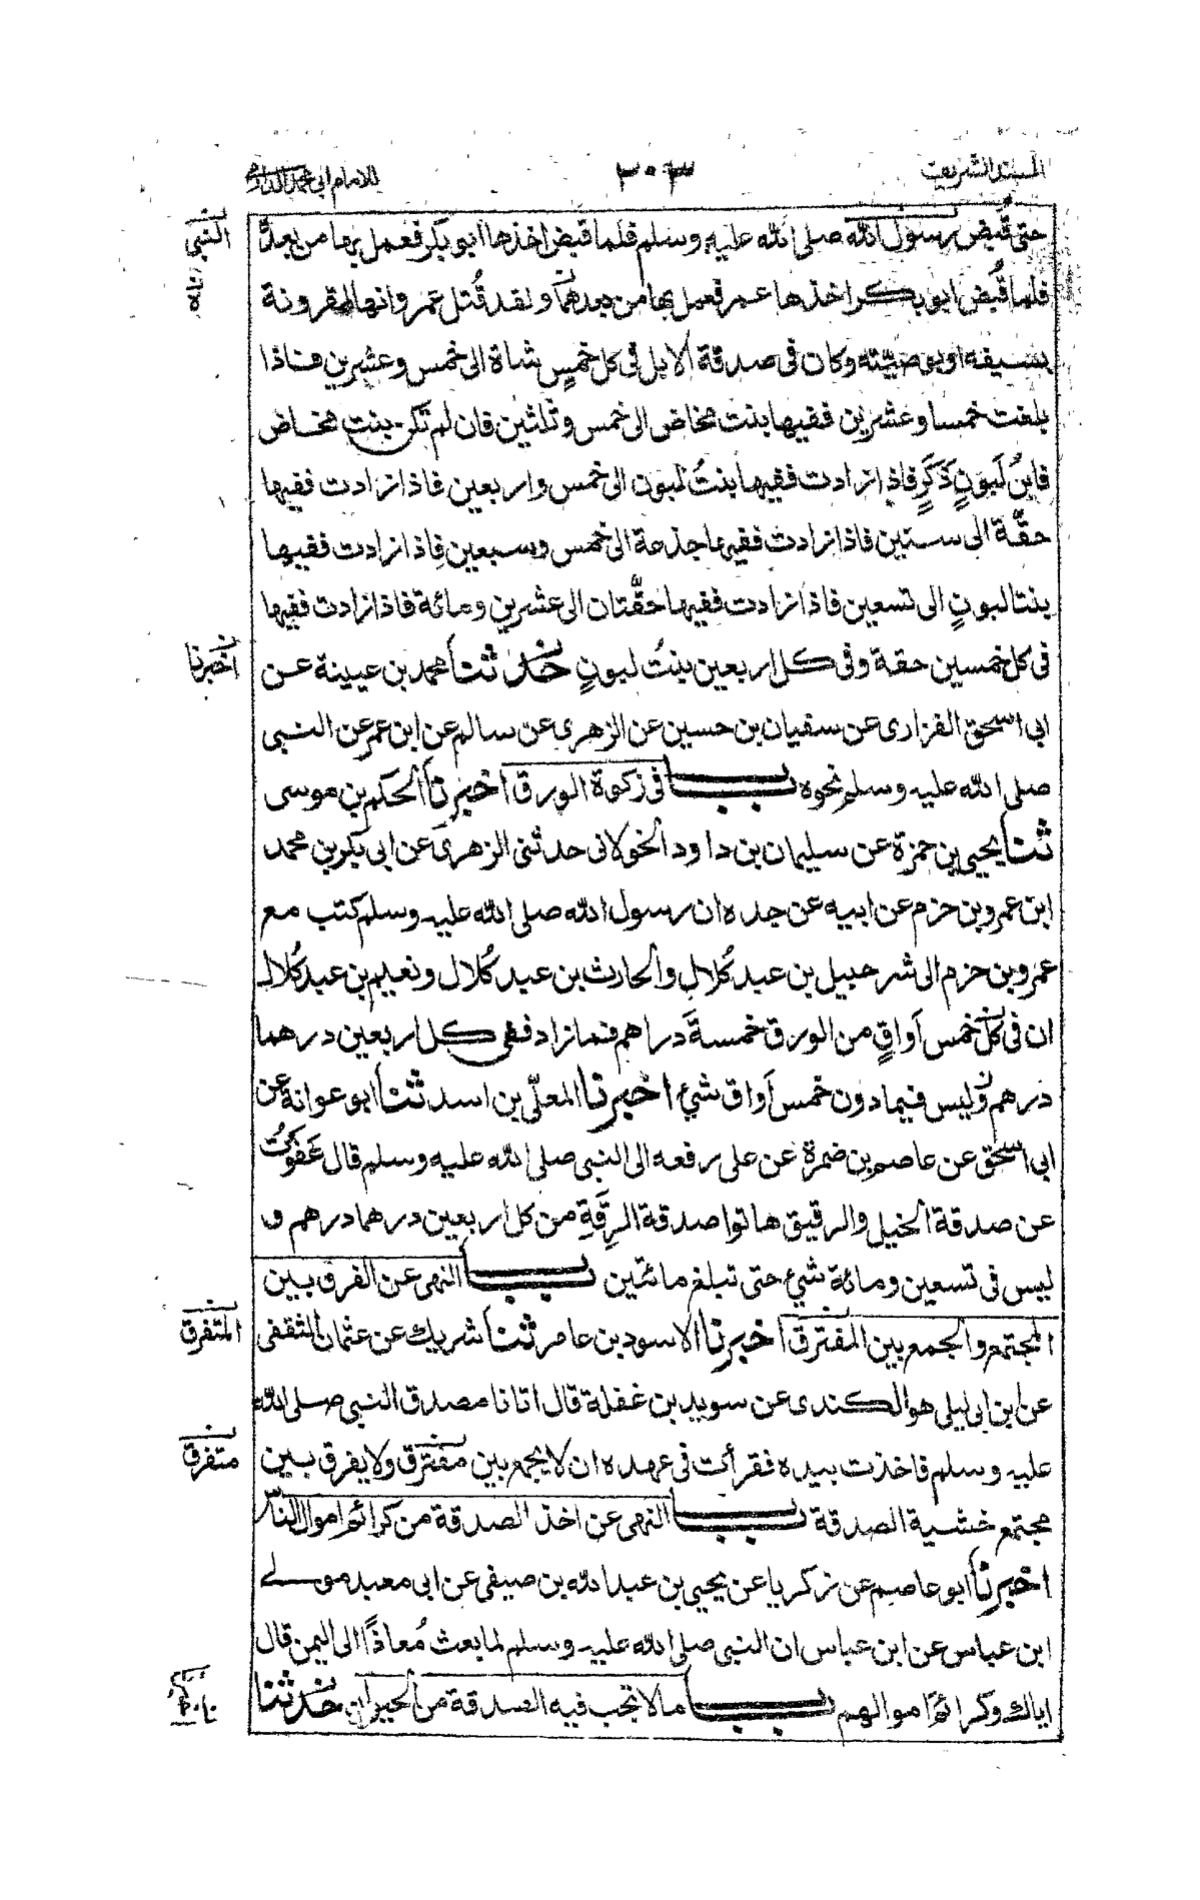 المسند الشريف ٢٠٣ للامام ابي محمد الدارمي
حتى قُبض رسول الله صلى الله عليه وسلم فلما قبض اخذها ابو بكر فعمل بها من بعده
النبي
فلما قُبض ابو بكر اخذها عمر فعمل بها من بعدهما ولقد قُتل عمر وانها لمقرونة
بسيفه او بوصيته وكان فى صدقة الابل فى كل خمسٍ شاة الى خمس وعشرين فاذا
بلغت خمسا وعشرين ففيها بنت مخاض الى خمس وثلثين فان لم تكن بنت مخاض
فابنُ لَبونٍ ذَكَرٍ فاذا زادت ففيها بنتُ لبون الى خمس واربعين فاذا زادت ففيها
حقّة الى ستين فاذا زادت ففيها جذعة الى خمس وسبعين فاذا زادت ففيها
بنتا لبونٍ الى تسعين فاذا زادت ففيها حقّتان الى عشرين ومائة فاذا زادت ففيها
فى كل خمسين حقة وفى كل اربعين بنتُ لبونٍ حدثنا محمد بن عيينة عن
اخبرنا
ابى اسحق الفزارى عن سفيان بن حسين عن الزهرى عن سالم عن ابن عمر عن النبى
صلى الله عليه وسلم نحوه باب فى زكوة الورق اخبرنا الحكم بن موسى
ثنا يحيى بن حمزة عن سليمان بن داود الخولانى حدثنى الزهرى عن ابى بكر بن محمد
ابن عمرو بن حزم عن ابيه عن جده ان رسول الله صلى الله عليه وسلم كتب مع
عمرو بن حزم الى شرحبيل بن عبد كُلال والحارث بن عبد كُلال ونعيم بن عبد كُلال
ان فى كل خمس اَواقٍ من الورق خمسةَ دراهم فما زاد ففى كل اربعين درهما
درهم وليس فيما دون خمس اَواق شئ اخبرنا المعلّى بن اسد ثنا ابو عوانة عن
ابى اسحق عن عاصم بن ضمرة عن على رفعه الى النبى صلى الله عليه وسلم قال عَفَوتُ
عن صدقة الخيل والرقيق هاتوا صدقة الرِقَةِ من كل اربعين درهما درهم و
ليس فى تسعين ومائة شئ حتى تبلغ مائتين باب النهى عن الفرق بين
المجتمع والجمع بين المفترق اخبرنا الاسود بن عامر ثنا شريك عن عثمان الثقفى
المتفرق
عن ابن ابى ليلى هو الكندى عن سويد بن غفلة قال اتانا مصدق النبى صلى الله
عليه وسلم فاخذت بيده فقرأت فى عهده ان لا يجمع بين مفترق ولا يفرق بين
متفرق
مجتمع خشية الصدقة باب النهى عن اخذ الصدقة من كرائم اموال الناس
اخبرنا ابو عاصم عن زكريا عن يحيى بن عبد الله بن صيفى عن ابى معبد مولى
ابن عباس عن ابن عباس ان النبى صلى الله عليه وسلم لما بعث مُعاذًا الى اليمن قال
اياك وكرائم اموالهم باب ما لا تجب فيه الصدقة من الحيوان حدثنا